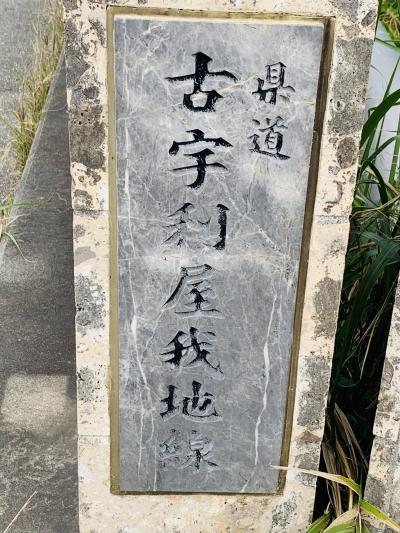 県道
古宇利屋我地線